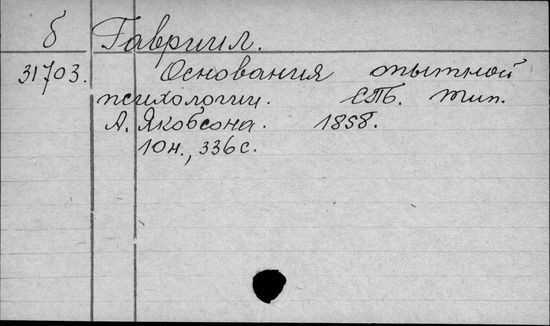 б Гавриил.
31703. Основания опытной
психологии. СПб. тип.
А. Якобсона. 1858.
10н., 336 с.